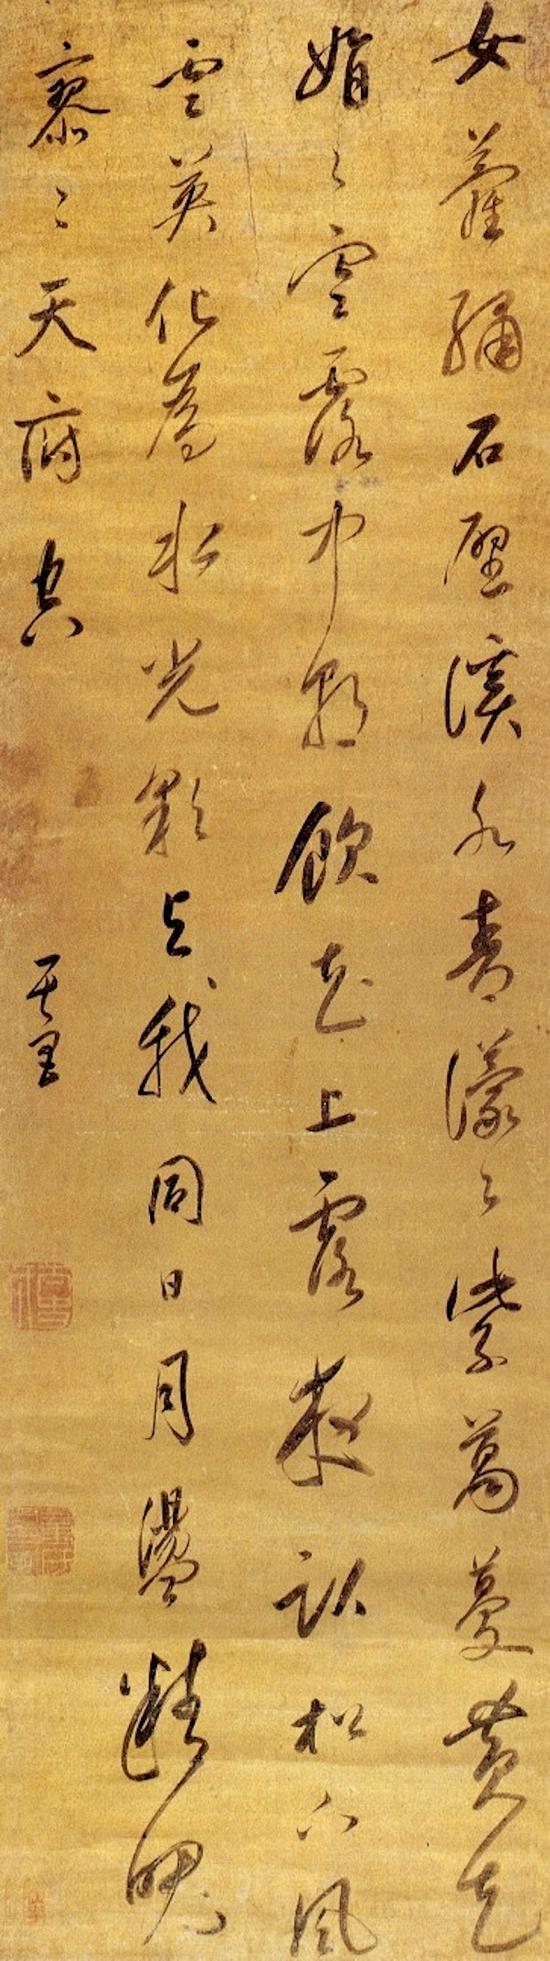 女蘿繡石壁溪水青濛〻紫葛蔓黃花
娟〻寒露中朝飲花上露夜臥松下風
雲英化為水光彩與我同日月蕩精魄
寥〻天府空
其昌